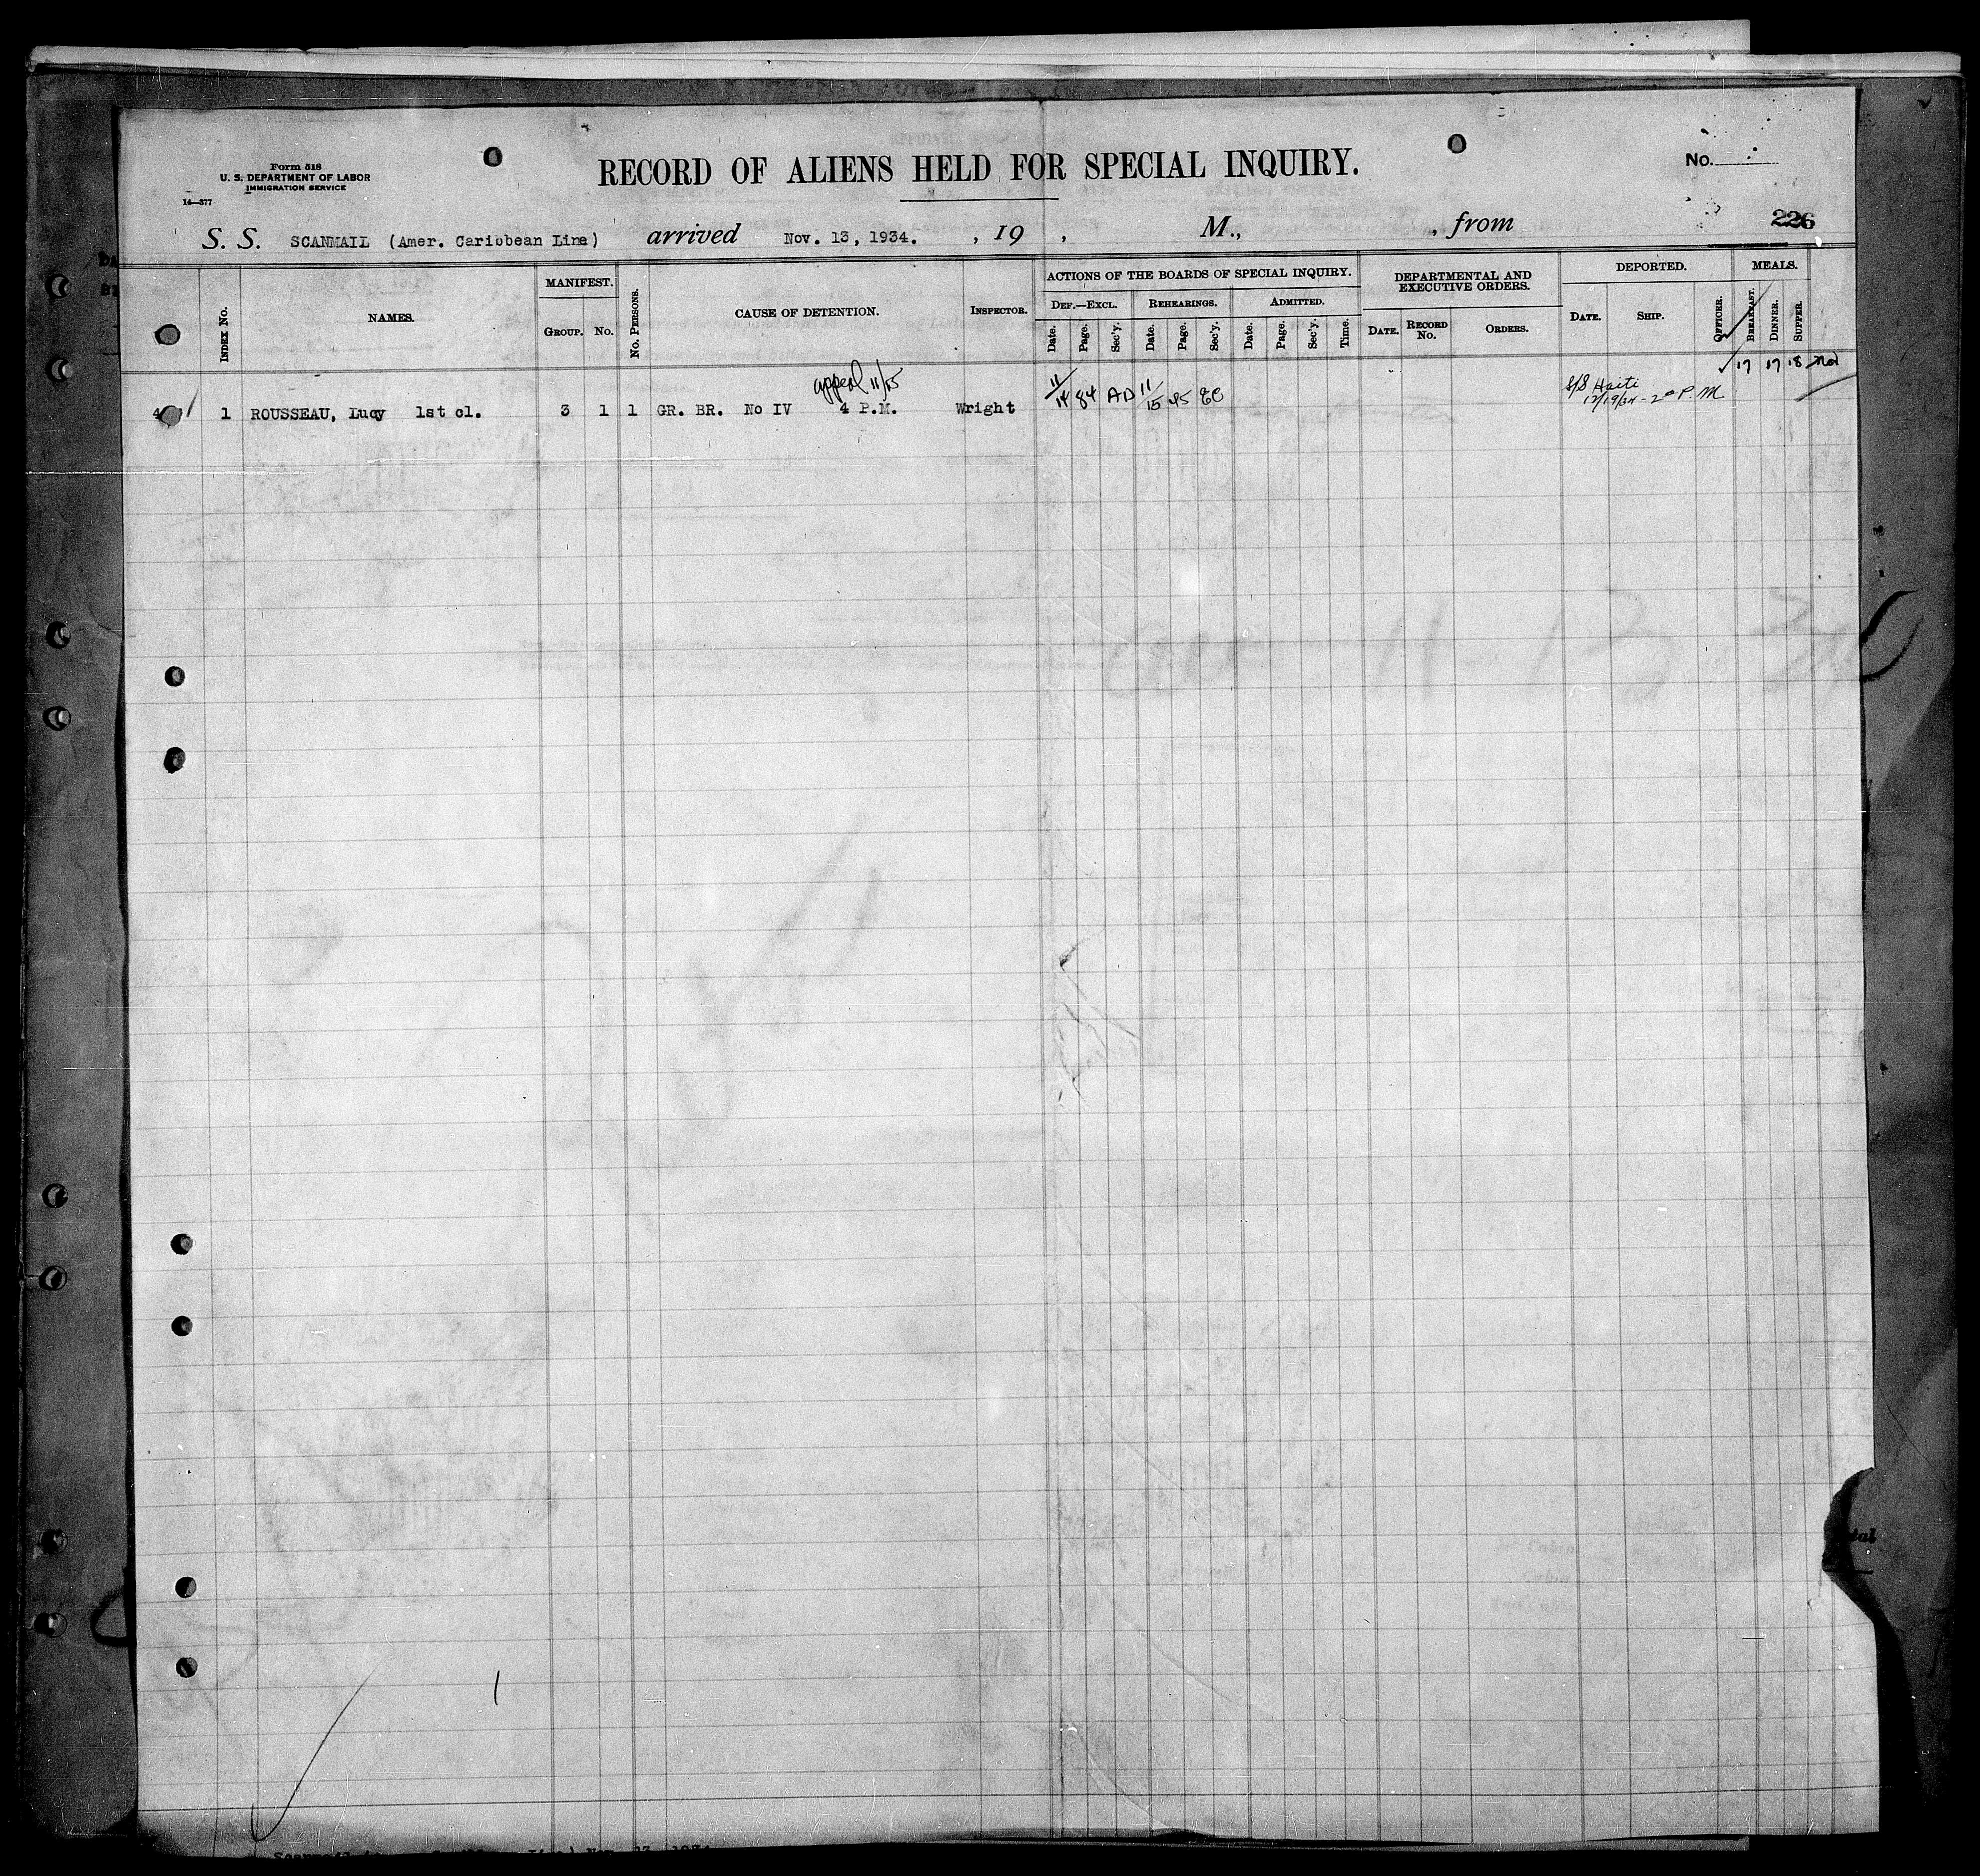 Form 518
U. S. DEPARTMENT OF LABOR
IMMIGRATION SERVICE
14—377
RECORD OF ALIENS HELD FOR SPECIAL INQUIRY.
No.
226
S. S. SCANMAIL (Amer. Caribbean Line) arrived Nov. 13, 1934. , 19 , M., , from
INDEX No. NAMES. MANIFEST. GROUP. No. No. PERSONS. CAUSE OF DETENTION. INSPECTOR.
ACTIONS OF THE BOARDS OF SPECIAL INQUIRY.
DEF.—EXCL. Date. Page. Sec'y. REHEARINGS. Date. Page. Sec'y. ADMITTED. Date. Page. Sec'y. Time.
DEPARTMENTAL AND EXECUTIVE ORDERS. DATE. RECORD No. ORDERS.
DEPORTED. DATE. SHIP. OFFICER.
MEALS. BREAKFAST. DINNER. SUPPER.
17 17 18
appeal 11/15
S/S Haiti
12/19/34 - 2 00 P. M.
1 ROUSSEAU, Lucy 1st cl. 3 1 1 GR. BR. No IV 4 P.M. Wright 11/14 84 AD 11/15
1